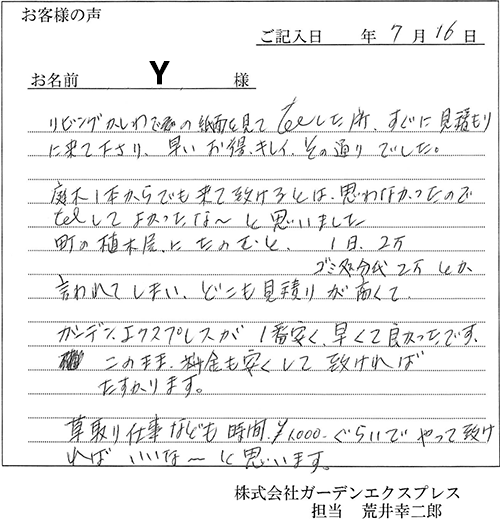 お客様の声
ご記入日 年 7月 16日
お名前 Y 様
リビングかしわでの紙面を見て telした所、すぐに見積もり
に来て下さり、早い お得、キレイ、その通りでした。
庭木1本からでも来て頂けるとは、思わなかったので
telして よかったな～と思いました
町の植木屋に たのむと、 1日、2万
ゴミ処分代 2万 とか
言われてしまい、どこも見積りが高くて、
ガーデンエクスプレスが 1番安く、早くて良かったです、
このまま、料金も安くして頂ければ
たすかります。
草取り仕事なども 時間、￥1,000-ぐらいで やって頂け
れば いいな～と思います。
株式会社ガーデンエクスプレス
担当 荒井幸二郎